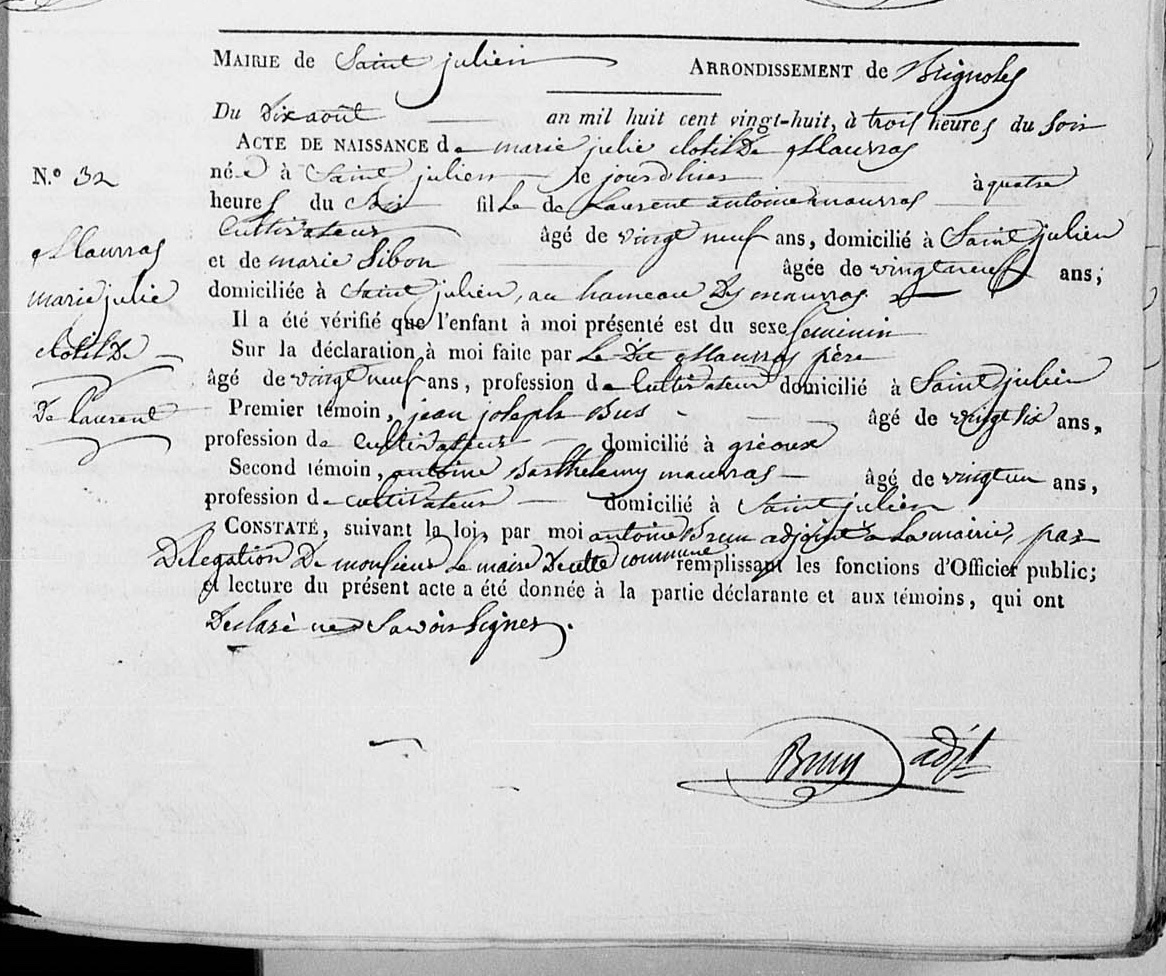 MAIRIE de Saint julien ARRONDISSEMENT de Brignoles
Du Dix août an mil huit cent vingt-huit, à trois heures du Soir
ACTE DE NAISSANCE de marie julie Clotilde Maurras
N.º 32
née à Saint julien le jour d'hier à quatre
heures du Soir fille de Laurent antoine maurras
Cultivateur âgé de vingt neuf ans, domicilié à Saint julien
et de marie Sibon âgée de vingt neuf ans;
domiciliée à Saint julien, au hameau Des maurras.
Il a été vérifié que l'enfant à moi présenté est du sexe feminin
Sur la déclaration à moi faite par Le Dit Maurras père
âgé de vingt neuf ans, profession de Cultivateur domicilié à Saint julien
Premier témoin, jean joseph Bus âgé de vingt six ans,
profession de Cultivateur domicilié à gréoux
Second témoin, antoine Barthelemy maurras âgé de vingt un ans,
profession de cultivateur domicilié à Saint julien
CONSTATÉ, suivant la loi, par moi antoine Brun adjoint a La mairie, par
Delegation De monsieur Le maire De cette commune remplissant les fonctions d'Officier public;
et lecture du présent acte a été donnée à la partie déclarante et aux témoins, qui ont
Declaré ne Savoir Signer.
Maurras
marie julie
Clotilde
De Laurent
Brun adjt